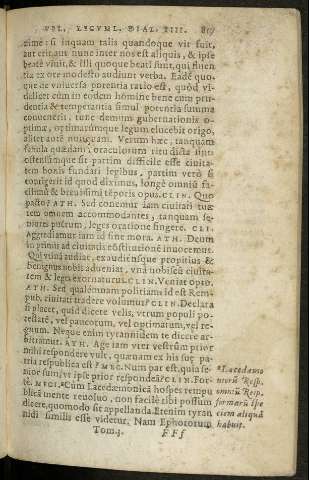 VEL, LEGVM. DIAL. IIII. 817
time: si inquam talis quandoque vir fuit,
aut erit, aut nunc inter nos est aliquis, & ipse
beatè viuit, & illi quoque beati sunt, qui fluen
tia ex ore modesto audiunt verba. Eadē quo
que de vniuersa potentia ratio est, quòd vi-
delicet cùm in eodem homine bene cum pru
dentia & temperantia simul potentia summa
conuenerit, tunc demum gubernationis o-
ptimæ, optimarúmque legum elucebit origo,
aliter autē nunquam. Verum hæc, tanquam
fabula quædam, oraculorum ritu dicta sint:
ostensúmque sit partim difficile esse ciuita-
tem bonis fundari legibus, partim verò si
contigerit id quod diximus, longè omniū fa-
cillimū & breuissimi tēporis opus. CLIN. Quo
pacto? ATH. Sed conemur iam ciuitati tuæ
tem omnem accommodantes, tanquam se-
niores puerum, leges oratione fingere. CLI.
Aggrediamur iam id sine mora. ATH. Deum
in primis ad ciuitatis cōstitutionē inuocemus.
Qui vtinā audiat, exauditúsque propitius &
benignus nobis adueniat, vnà nobiscū ciuita-
tem & leges exornaturus. CLIN. Veniat opto.
ATH. Sed qualémnam politiam id est Rem-
pub. ciuitati tradere volumus? CLIN. Declara
si placet, quid dicere velis, vtrum populi po-
testatē, vel paucorum, vel optimatum, vel re-
gnum. Neque enim tyrannidem te dicere ar-
bitramur. ATH. Age iam vter vestrûm prior
mihi respondere vult, quænam ex his suę pa-
tria respublica est? MEG. Num par est, quia se-
nior sum, vt ipse prior respondeā? CLIN. For-
tè. MEGI. Cum Lacedæmonicā hospes rempu
blicā mente reuoluo, non facilè tibi possum
dicere, quomodo sit appellanda. Etenim tyran
nidi similis esse videtur. Nam Ephororum
Tom. j. FFf
Lacedæmo
niorū Resp.
omniū Resp.
formarū spe
ciem aliquā
habuit.